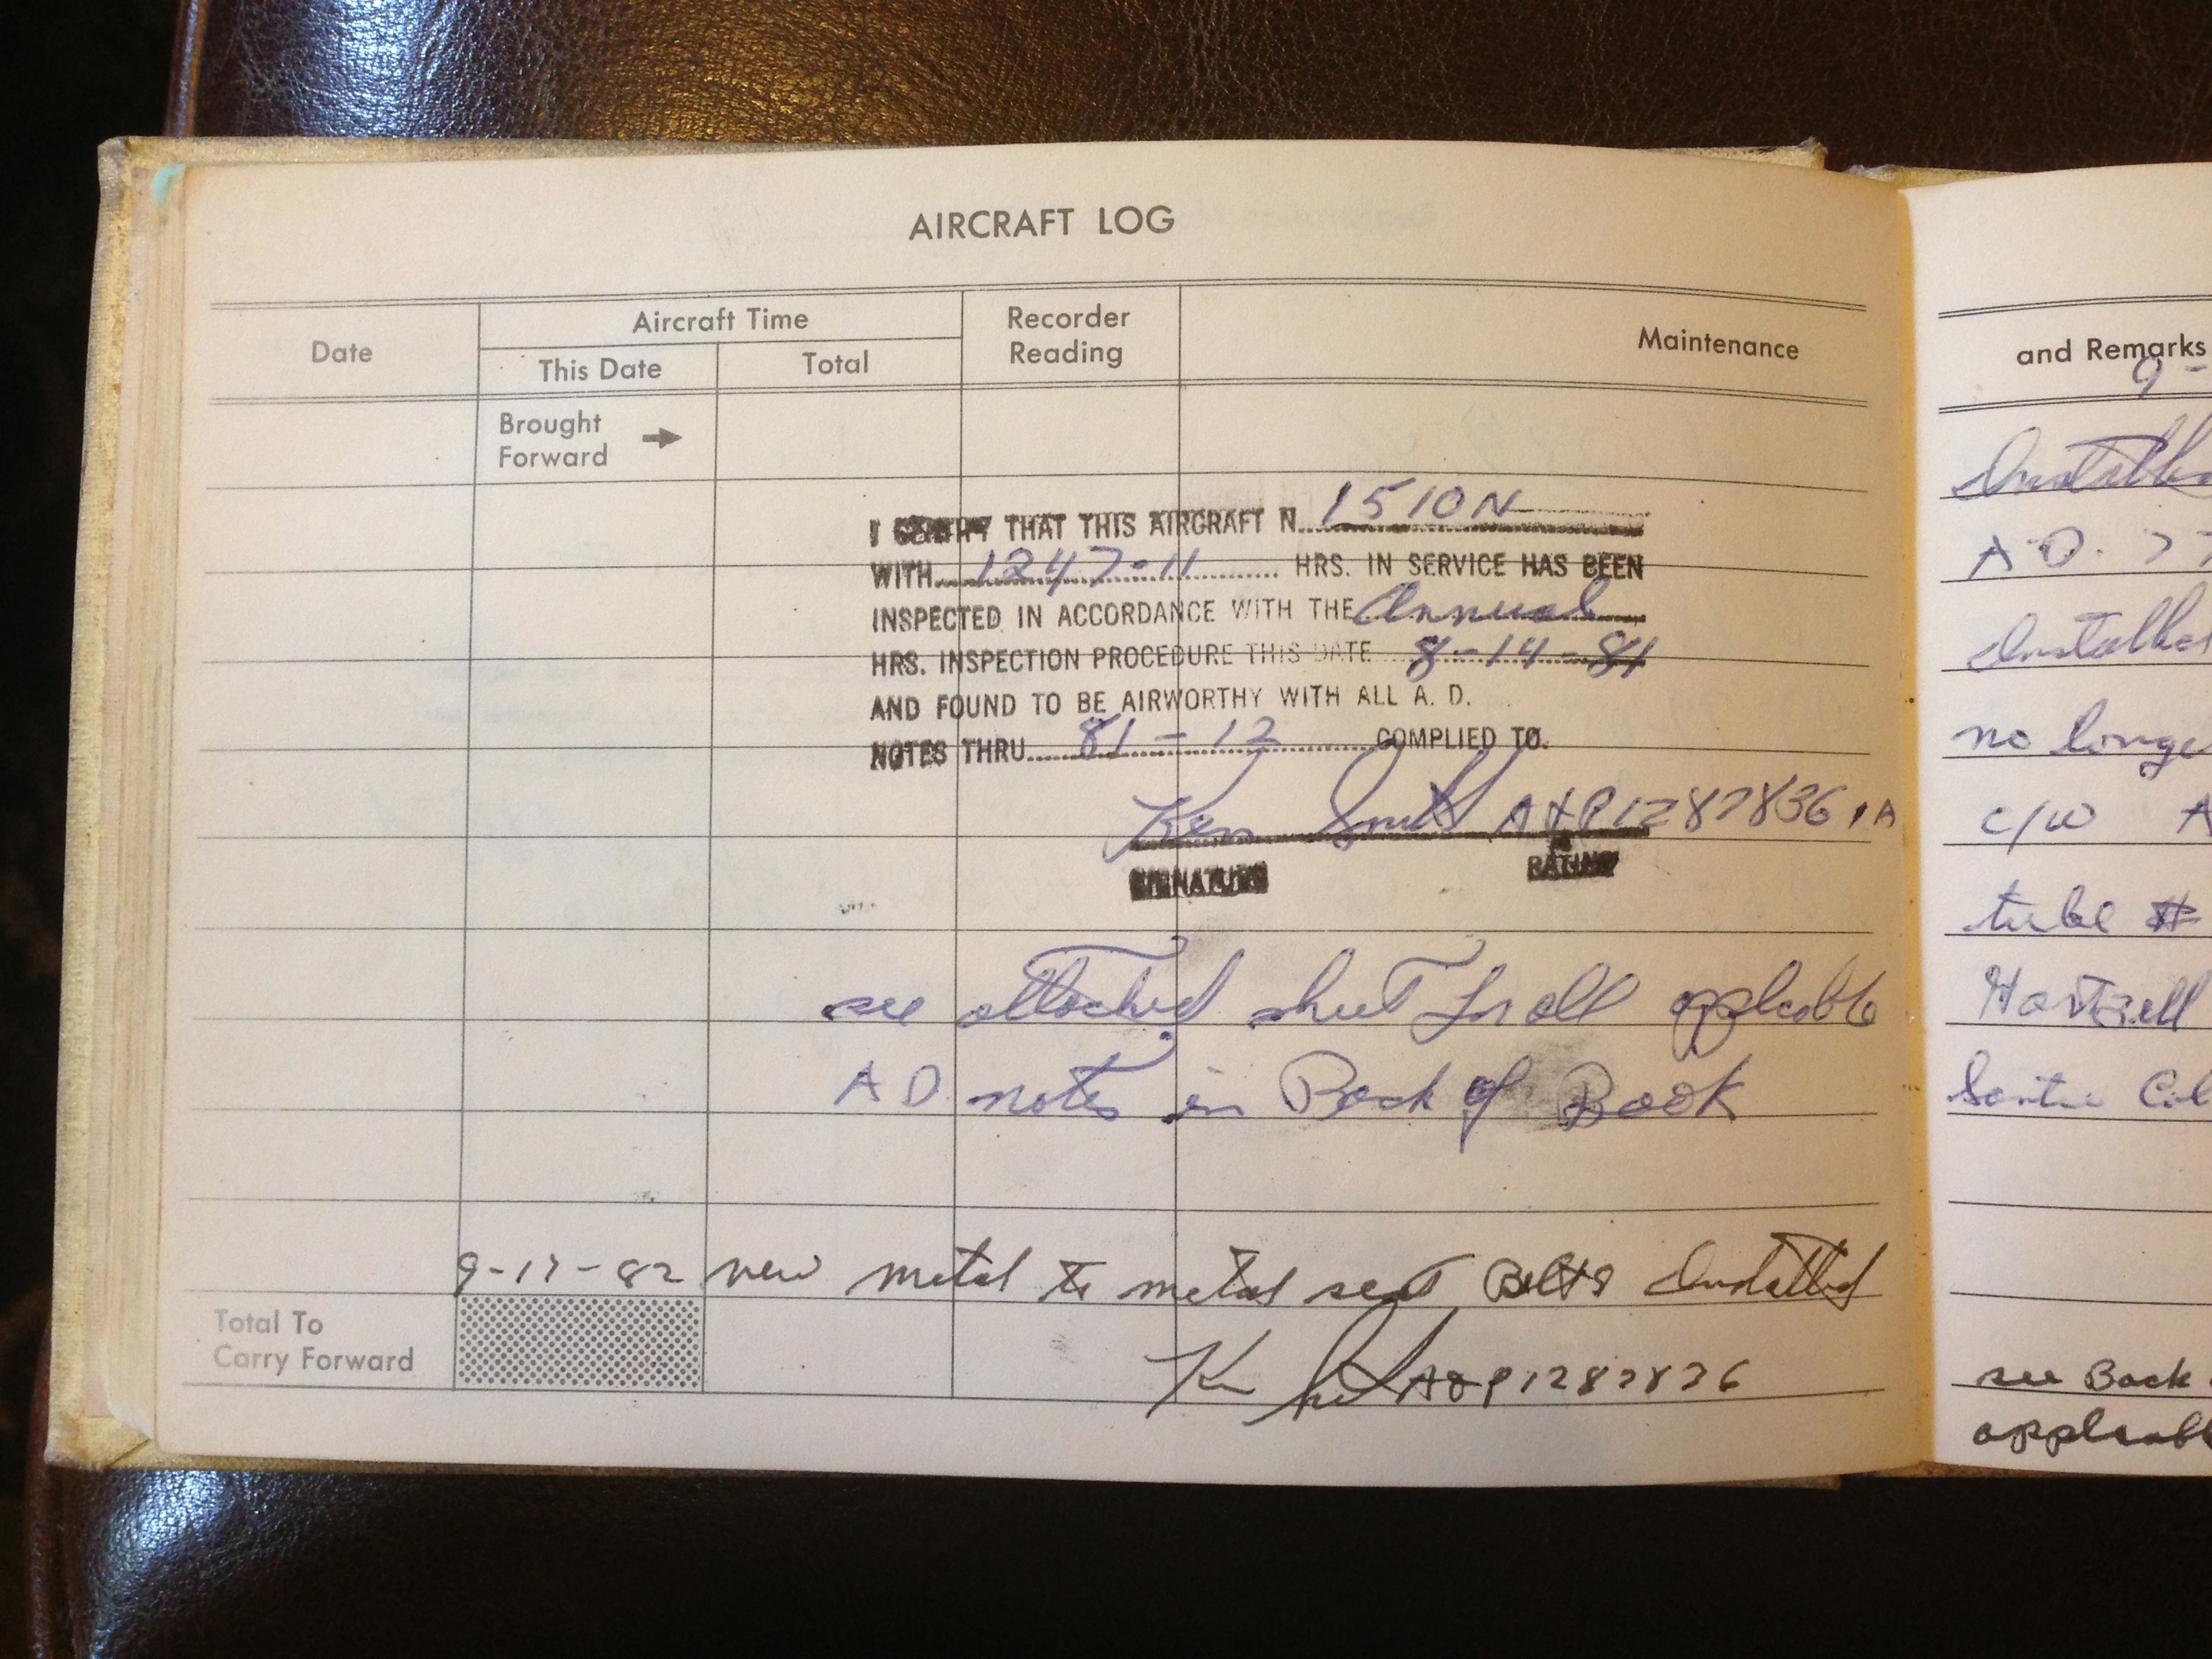 AIRCRAFT LOG
Date
Aircraft Time
This Date
Total
Recorder
Reading
Maintenance
Brought
Forward
I CERTIFY THAT THIS AIRCRAFT N 1510N
WITH 1247-11 HRS. IN SERVICE HAS BEEN
INSPECTED IN ACCORDANCE WITH THE Annual
HRS. INSPECTION PROCEDURE THIS DATE 8-14-81
AND FOUND TO BE AIRWORTHY WITH ALL A. D.
NOTES THRU 81-12 COMPLIED TO.
Ken Smith A&P1282836 IA
SIGNATURE RATING
see attached sheet for all
A D notes in Back of Book
9-17-82 new metal to metal seat Belts Installed
Total To
Carry Forward
Ken A&P1282836
and Remarks
9-
A.D. 77
no longe
c/w A
tube #
Hartzell
see Back